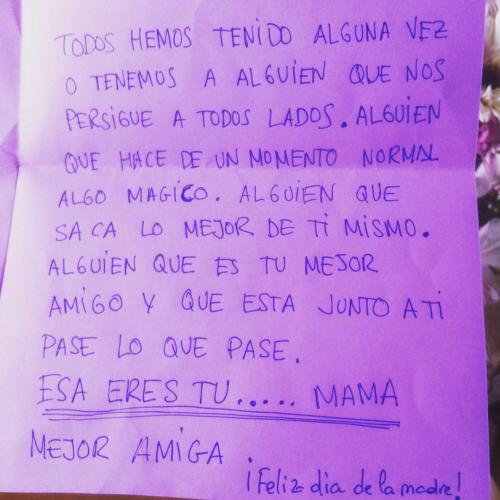 TODOS HEMOS TENIDO ALGUNA VEZ
O TENEMOS A ALGUIEN QUE NOS
PERSIGUE A TODOS LADOS. ALGUIEN
QUE HACE DE UN MOMENTO NORMAL
ALGO MAGICO. ALGUIEN QUE
SACA LO MEJOR DE TI MISMO.
ALGUIEN QUE ES TU MEJOR
AMIGO Y QUE ESTA JUNTO A TI
PASE LO QUE PASE.
ESA ERES TU..... MAMA
MEJOR AMIGA
¡Feliz dia de la madre!